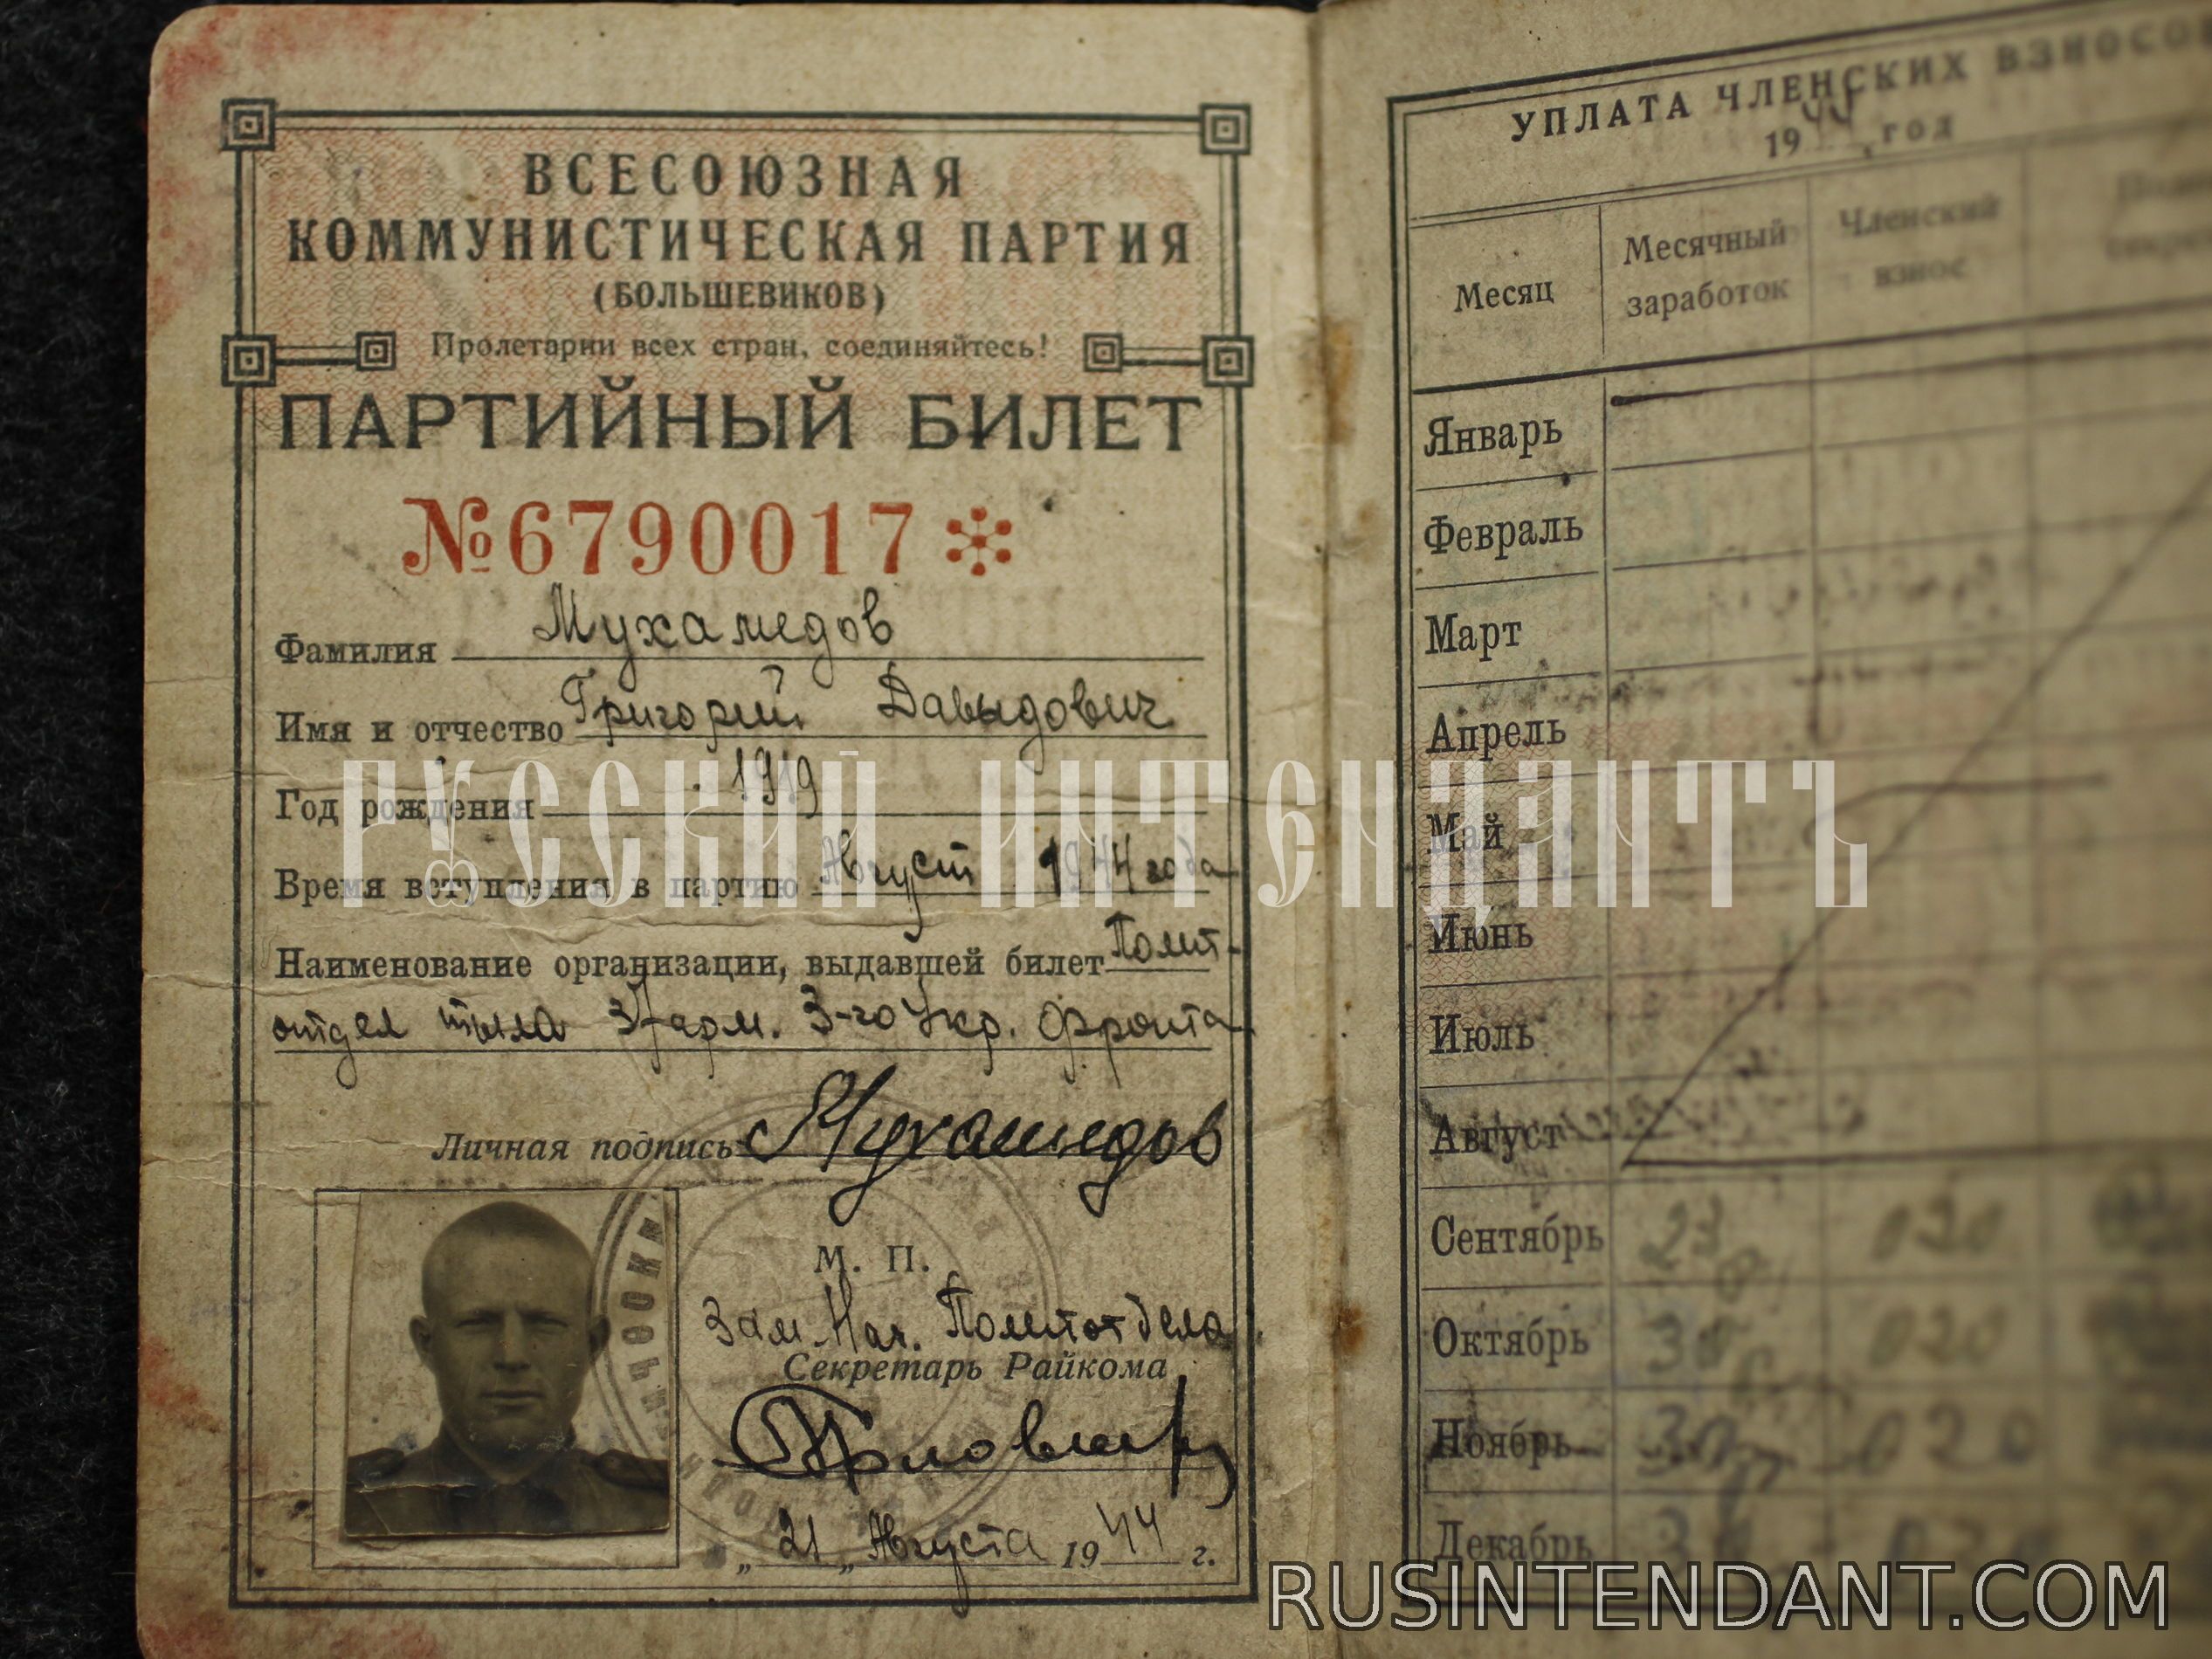 ВСЕСОЮЗНАЯ
КОММУНИСТИЧЕСКАЯ ПАРТИЯ
(БОЛЬШЕВИКОВ)
Пролетарии всех стран, соединяйтесь!
ПАРТИЙНЫЙ БИЛЕТ
№6790017
Фамилия Мухамедов
Имя и отчество Григорий Давыдович
Год рождения 1919
Время вступления в партию Август 1944 года
Наименование организации, выдавшей билет Полит-
отдел тыла 37 арм. 3-го Укр. Фронта
Личная подпись Мухамедов
М. П.
Зам. Нач. Политотдела
Секретарь Райкома
„ 21 „ Августа 1944 г.
УПЛАТА ЧЛЕНСКИХ ВЗНОСОВ
1944 год
Месяц Месячный заработок Членский взнос
Январь
Февраль
Март
Апрель
Май
Июнь
Июль
Август
Сентябрь
Октябрь
Ноябрь
Декабрь
РУССКИЙ ИНТЕНДАНТЪ
RUSINTENDANT.COM